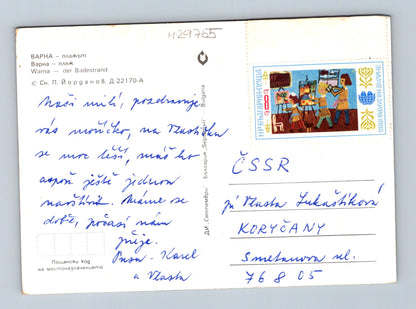 H29755
ВАРНА – плажът
Варна – пляж
Warna – der Badestrand
© Сн. П. Йорданов. Д-22170-А
Naši milí, pozdravuje
vás mončko, na Vlastičku
se moc těší, máš ho
aspoň ještě jednou
navštívit. Máme se
dobře, počasí nám
přeje.
Pusa - Karel
a Vlasta
Пощенски код
на местоназначението
ДИ „Септември“ България „Septemvri“ Bulgaria
НР БЪЛГАРИЯ
ČSSR
pí Vlasta Lukaštíková
KORYČANY
Smetanova ul.
768 05